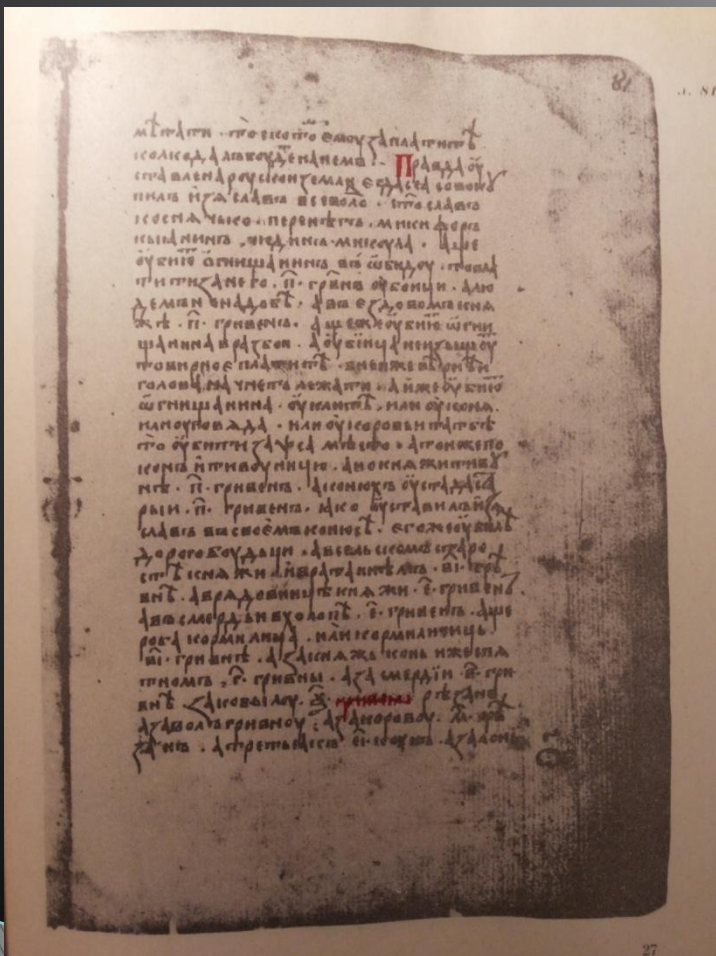 81
л. 81
мѣтати · то скотѡ ємоу заплатитъ
колко далъ боудєть на нємъ · Правда оу
ставлєна роуськои зємли єгда сѧ совокоу
пилъ изѧславъ всєволо · стославъ
коснѧчько · пєрєнѣгъ · микифоръ
кыꙗнинъ · чюдинъ · микоула · Ащє
оубию ѡгнищанина въ ѡбидоу · то пла
тити за нєго · п҃ · грвнъ оубоици · а лю
дємъ нє надобѣ · а въ єздовомъ кнѧ
жѣ · п҃ · гривєнъ · а щє жє оубию ѡгни
щанина в разбои · а оубиица нє ищоуть
то вирноє платити · в нєи жє вєрви
голова начнєть лєжати · А ижє оубию
ѡгнищанина · оу клѣти · или оу конѧ
или оу говѧда · или оу коровьи татьбы
то оубити в пса мѣсто · а то жє по
конъ и тивоуницю · А в кнѧжи тивоу
нѣ · п҃ · гривєнъ · а конюхъ оу стада ста
рыи · п҃ · гривєнъ · ꙗко оуставилъ изѧ
славъ въ своємъ конюсѣ · єго жє оубилѣ
дорогобоудьци · а в сєльскомъ старо
стѣ кнѧжи и в ратаинѣмъ · ві҃ · гри
внѣ · а в рѧдовници кнѧжи · є҃ · гривєнъ
а в смєрдѣ и в холопѣ · є҃ · гривєнъ · ащє
роба кормилица · или кормиличиць
ві҃ · гривнѣ · а за кнѧжь конь ижє с пѧ
тномъ · г҃ · гривны · а за смєрдѣи · в҃ · гри
внѣ за кобылоу · ѯ҃ · гривєнъ рѣзанъ
а за волъ гривноу · а за коровоу · м҃ · рѣ
занъ · а трєтьꙗкъ · єі҃ · коунъ · а за лонь
27